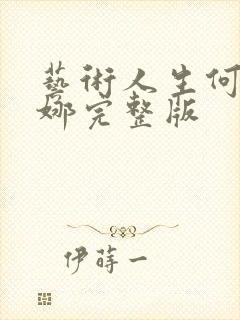 藝術人生何
娜完整版
伊蒔一